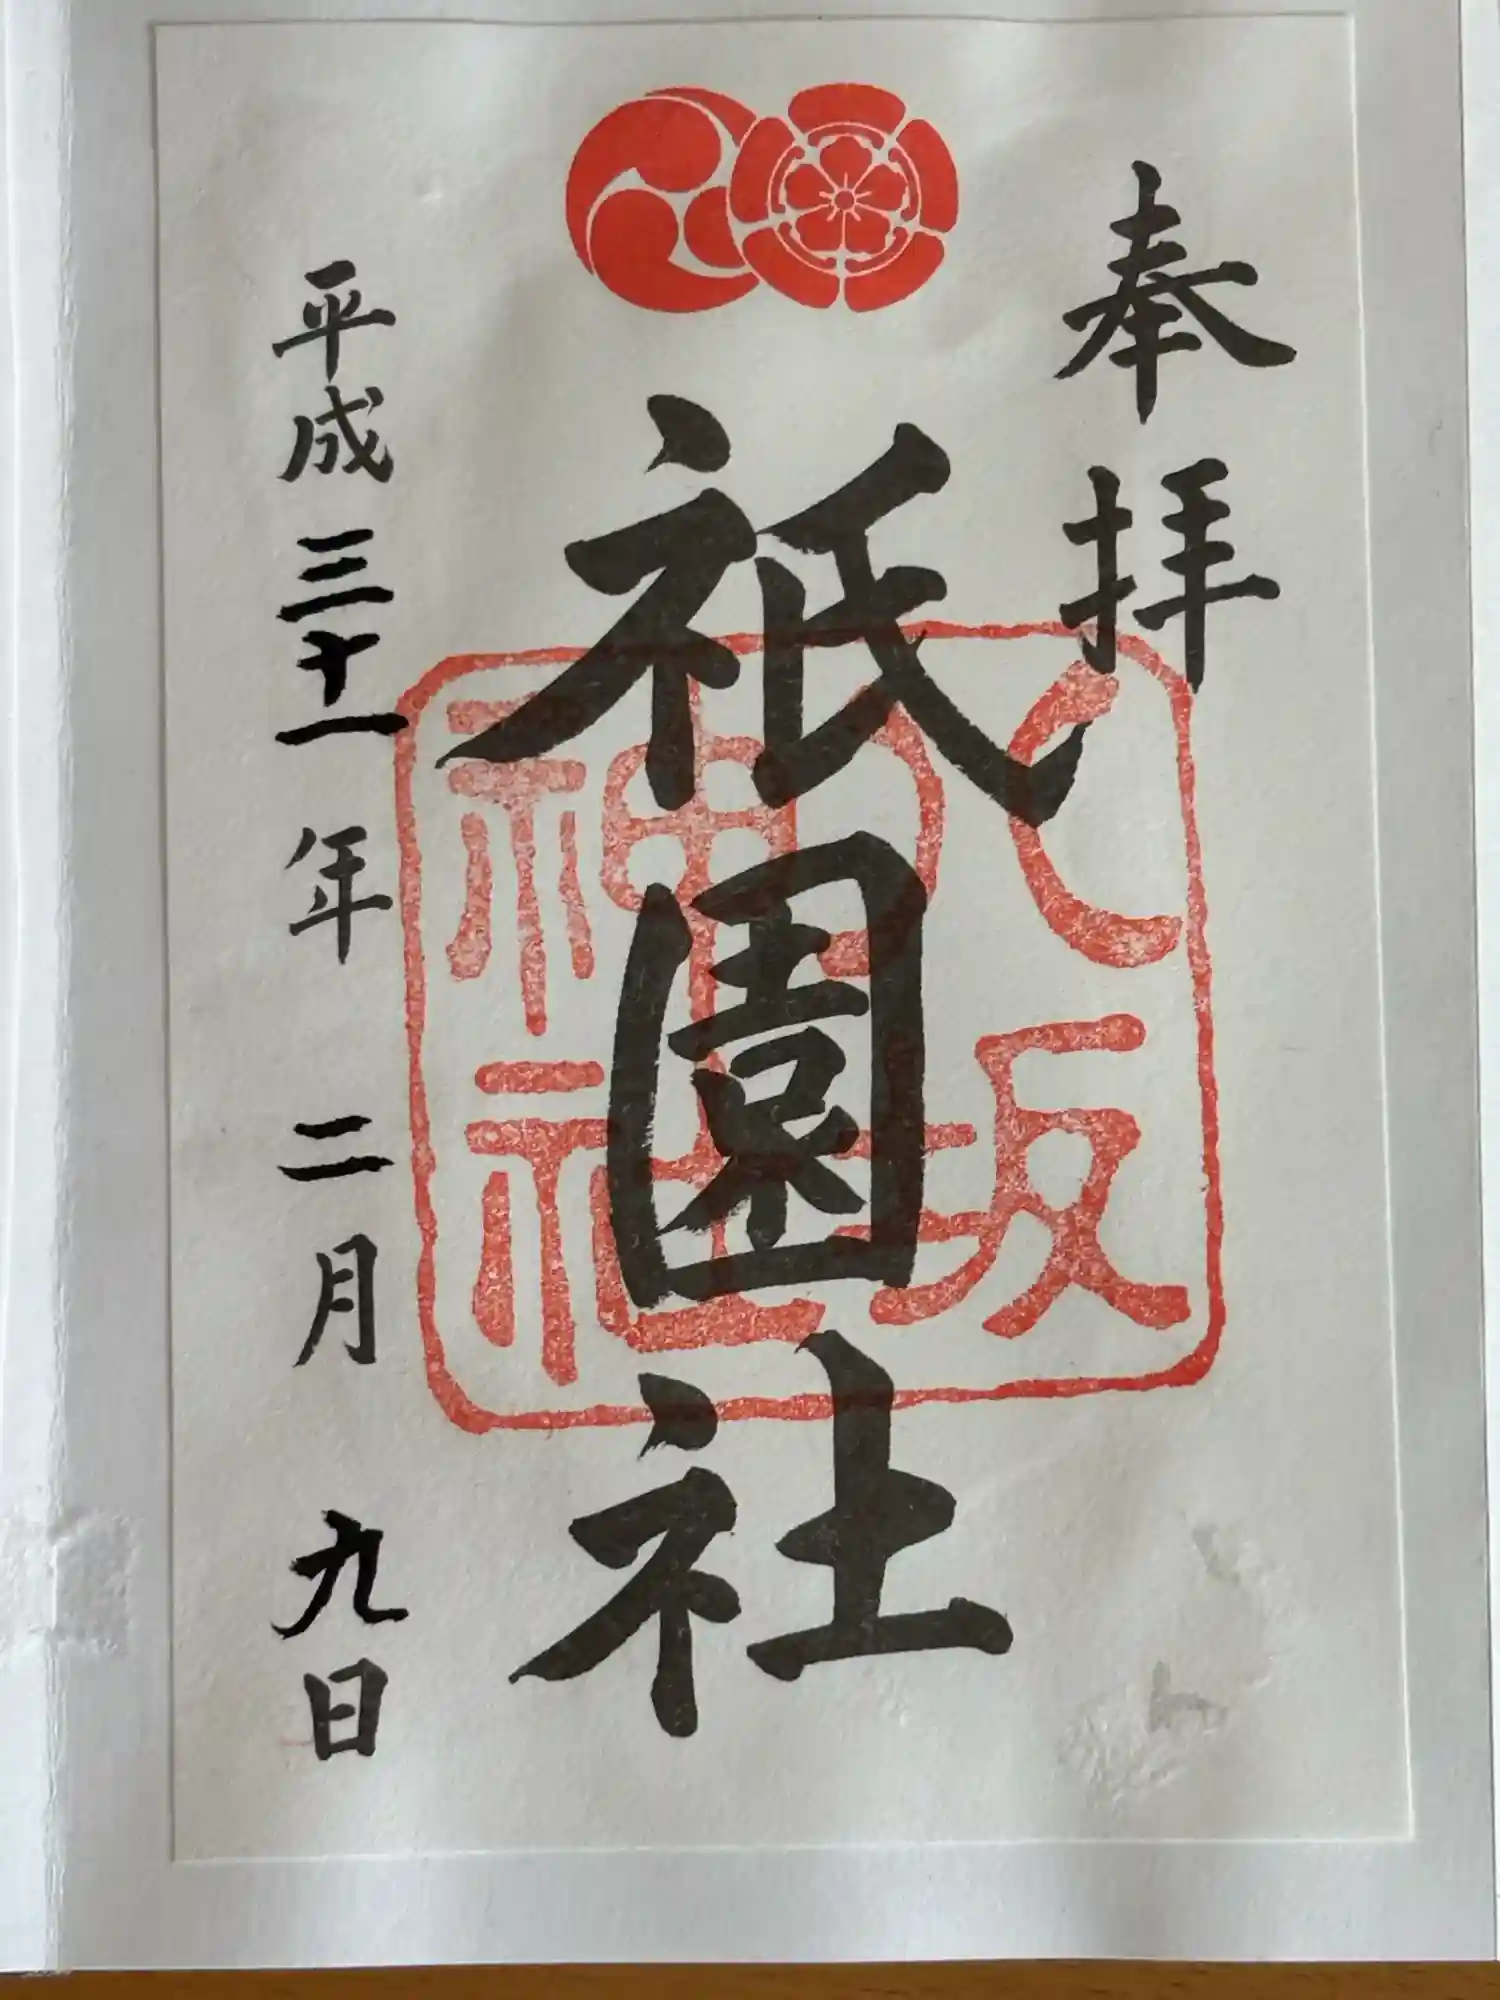 奉拝
八坂神社
祇園社
平成三十一年二月九日